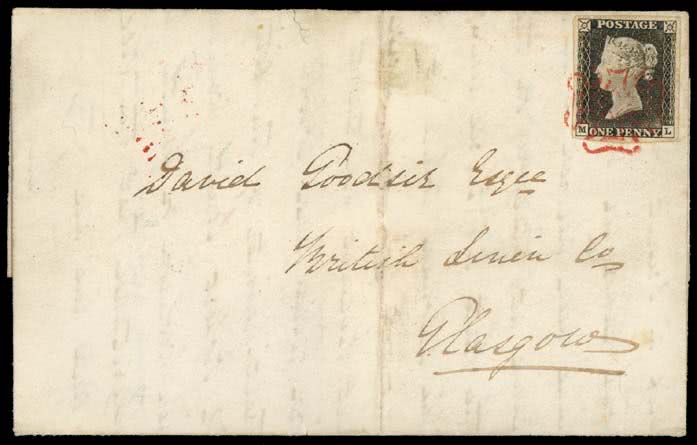 POSTAGE
M L
ONE PENNY
David Goodsir Esqre
British Linen Co
Glasgow